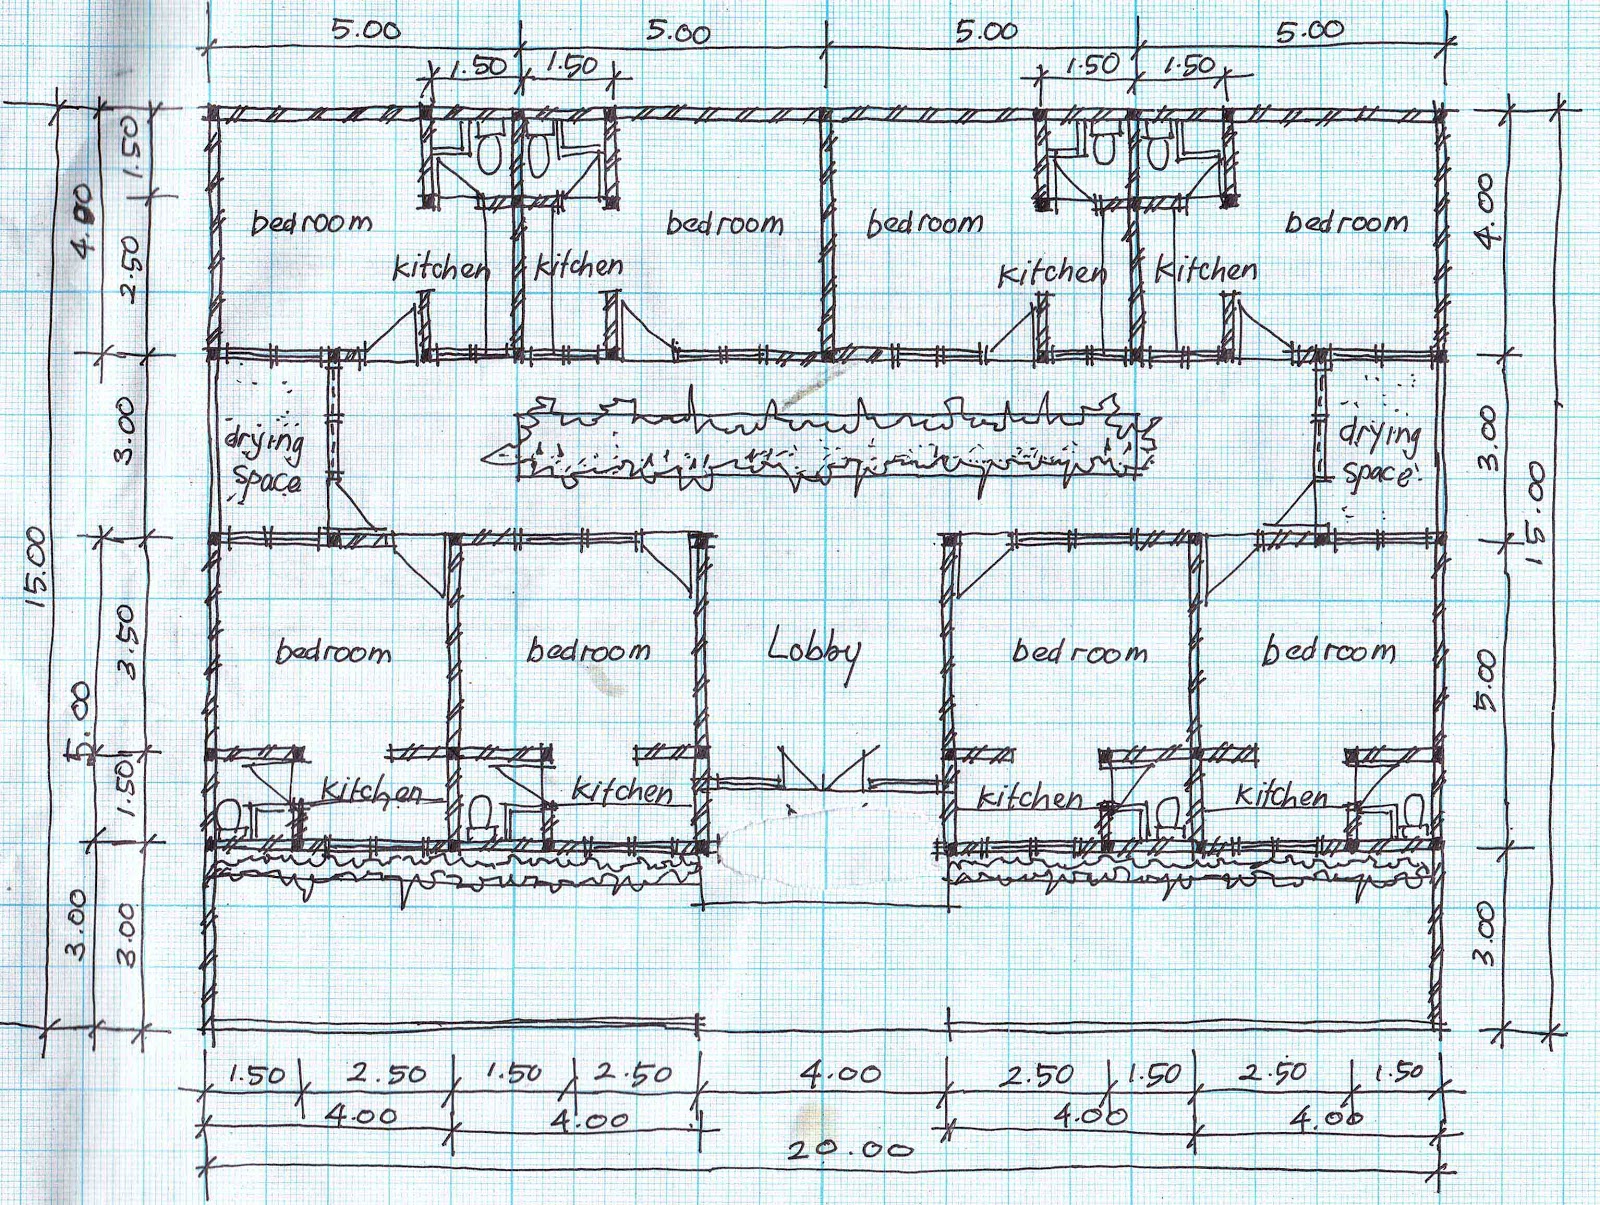 5.00 5.00 5.00 5.00
1.50 1.50 1.50 1.50
1.50
4.00
2.50
3.00
15.00
3.50
5.00
1.50
3.00
3.00
bedroom bedroom bedroom bedroom
kitchen kitchen kitchen kitchen
drying
space
drying
space
bedroom bedroom Lobby bedroom bedroom
kitchen kitchen kitchen kitchen
4.00
3.00
15.00
5.00
3.00
1.50 2.50 1.50 2.50 4.00 2.50 1.50 2.50 1.50
4.00 4.00 4.00 4.00
20.00